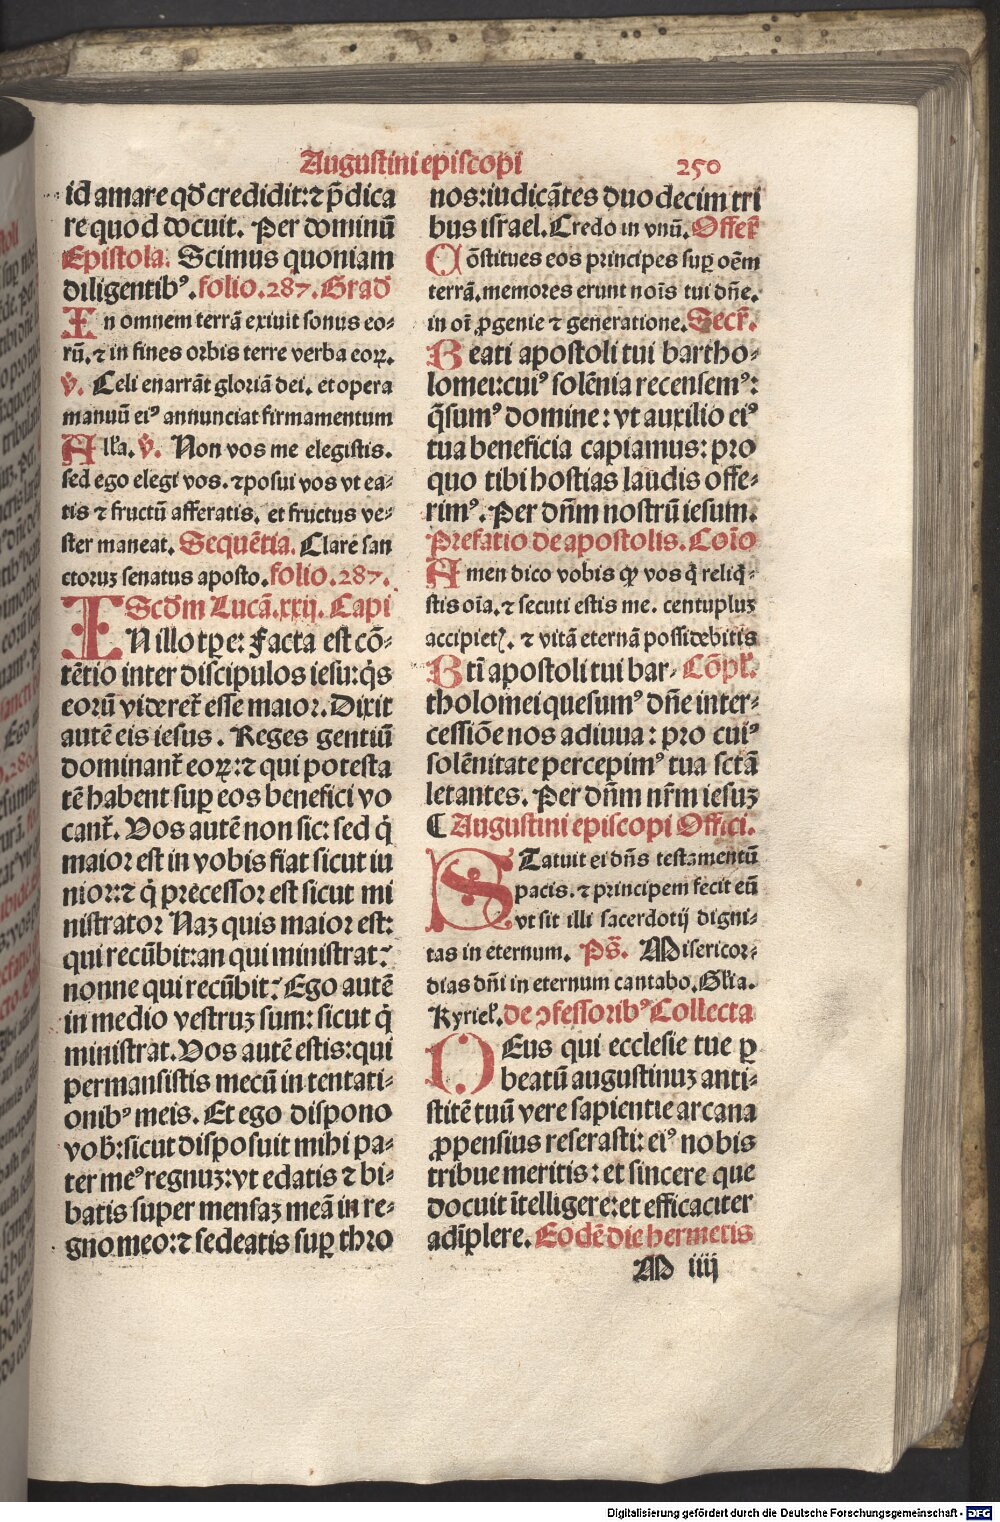 Augustini episcopi 250
id amare qđ credidit: ⁊ p̄dica
re quod docuit. Per dominū
Epistola. Scimus quoniam
diligentibꝰ. folio .287. Grad̄
In omnem terrā exiuit sonus eo⸗
rū. ⁊ in fines orbis terre verba eoꝝ.
℣. Celi enarrāt gloriā dei. et opera
manuū eiꝰ annunciat firmamentum
Alła. ℣. Non vos me elegistis.
sed ego elegi vos. ⁊ posui vos vt ea⸗
tis ⁊ fructū afferatis. et fructus ve⸗
ster maneat. Sequētia. Clare san
ctoruꝫ senatus aposto. folio .287.
Scđm Lucā .xxij. Capi
IN illo tꝑe: Facta est cō⸗
tētio inter discipulos iesu: q̇s
eorū videret᷑ esse maior. Dixit
autē eis iesus. Reges gentiū
dominant᷑ eoꝝ: ⁊ qui potesta
tē habent suꝑ eos benefici vo
cant᷑. Vos autē non sic: sed q̇
maior est in vobis fiat sicut iu
nior: ⁊ q̇ precessor est sicut mi
nistrator Naꝫ quis maior est:
qui recūbit: an qui ministrat?
nonne qui recūbit? Ego autē
in medio vestruꝫ sum: sicut q̇
ministrat. Vos autē estis: qui
permansistis mecū in tentati⸗
onibꝰ meis. Et ego dispono
vob̄: sicut disposuit mihi pa⸗
ter meꝰ regnuꝫ: vt edatis ⁊ bi⸗
batis super mensaꝫ meā in re⸗
gno meo: ⁊ sedeatis suꝑ thro
nos: iudicātes duodecim tri
bus israel. Credo in vnū. Offer̄
Cōstitues eos principes suꝑ oēm
terrā. memores erunt noīs tui dn̄e.
in oī ꝓgenie ⁊ generatione. Secr̄.
Beati apostoli tui bartho⸗
lomei: cuiꝰ solēnia recensemꝰ:
q̄sumꝰ domine: vt auxilio eiꝰ
tua beneficia capiamus: pro
quo tibi hostias laudis offe⸗
rimꝰ. Per dn̄m nostrū iesum.
Prefatio de apostolis. Coīo
Amen dico vobis ꝙ vos q̇ reliq̇⸗
stis oīa. ⁊ secuti estis me. centupluꝫ
accipietꝭ. ⁊ vitā eternā possidebitis
Btī apostoli tui bar⸗ Cōpł.
tholomei quesumꝰ dn̄e inter⸗
cessiōe nos adiuua: pro cuiꝰ
solēnitate percepimꝰ tua sctā
letantes. Per dn̄m nr̄m iesuꝫ
¶ Augustini episcopi Offici.
STatuit ei dn̄s testamentū
pacis. ⁊ principem fecit eū
vt sit illi sacerdotij digni⸗
tas in eternum. Ps̄. Misericor⸗
dias dn̄i in eternum cantabo. Głia.
Kyrieł. de ↄfessoribꝰ Collecta
DEus qui ecclesie tue ꝑ
beatū augustinuꝫ anti⸗
stitē tuū vere sapientie arcana
ꝓpensius reserasti: eiꝰ nobis
tribue meritis: et sincere que
docuit ītelligere: et efficaciter
adīplere. Eodē die hermetis
M iiij
Digitalisierung gefördert durch die Deutsche Forschungsgemeinschaft - DFG